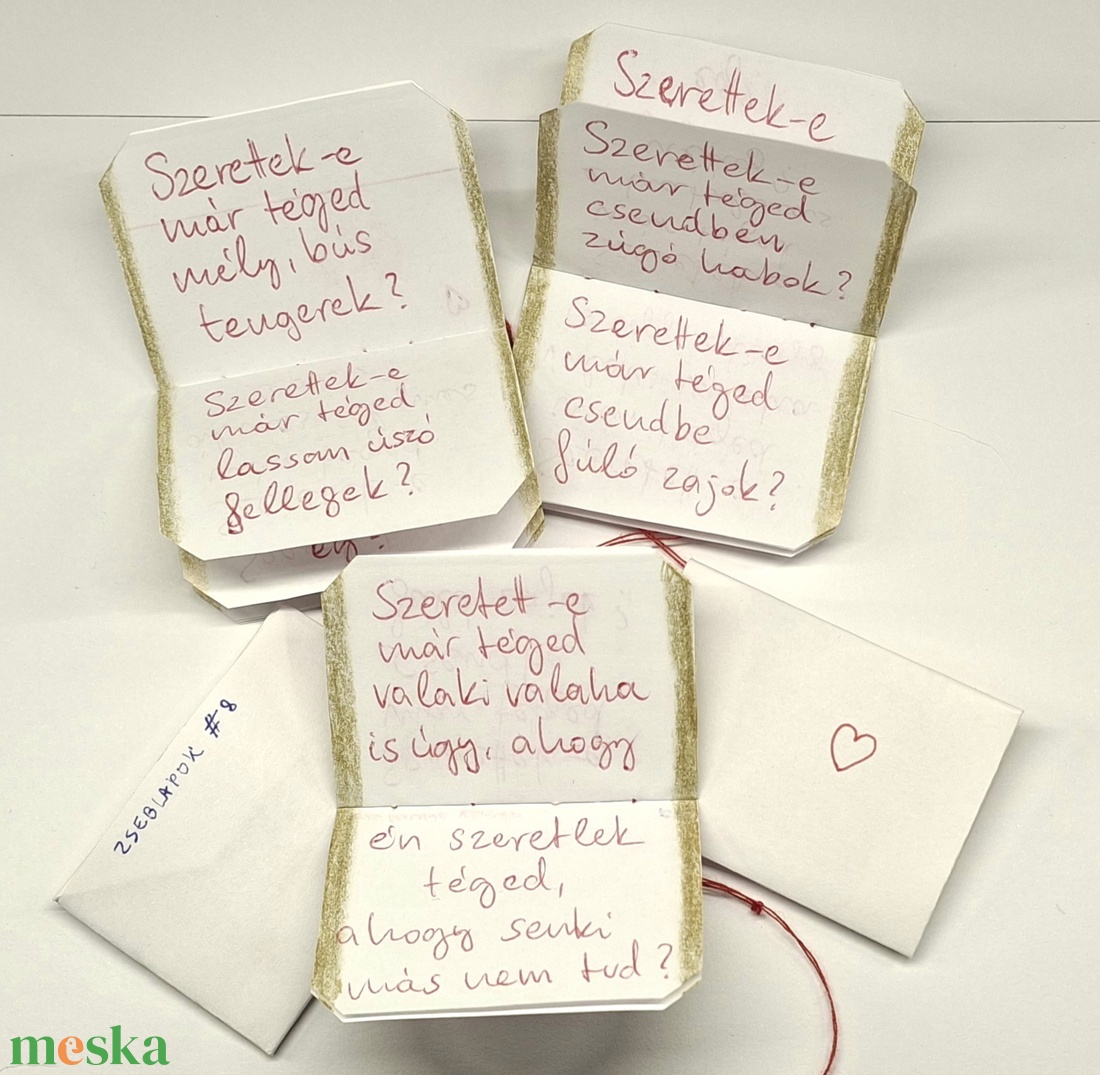 Szerettek-e
már téged
mély, bús
tengerek?
Szerettek-e
már téged
lassan úszó
fellegek?
ég?
Szerettek-e
Szerettek-e
már téged
csendben
zúgó habok?
Szerettek-e
már téged
csendbe
fúló zajok?
Szeretett-e
már téged
valaki valaha
is úgy, ahogy
én szeretlek
téged,
ahogy senki
más nem tud?
ZSEBLAPOK #8
meska